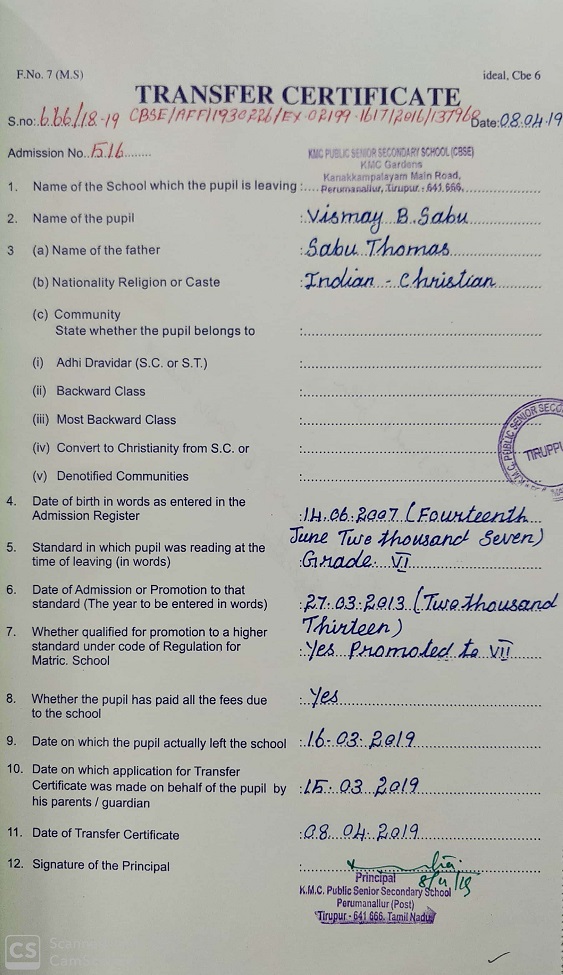 F.No. 7 (M.S)
ideal, Cbe 6
TRANSFER CERTIFICATE
S.no:.6.66/18-19 CBSE/AFF/1930226/EX-02199-1617/2016/137968 Date:08.04.19
Admission No. 1516
KMC PUBLIC SENIOR SECONDARY SCHOOL (CBSE)
KMC Gardens
Kanakkampalayam Main Road,
1. Name of the School which the pupil is leaving :.... Perumanallur, Tirupur - 641 666.
2. Name of the pupil : Vismay B. Sabu
3 (a) Name of the father : Sabu Thomas
(b) Nationality Religion or Caste : Indian - Christian
(c) Community
State whether the pupil belongs to :
(i) Adhi Dravidar (S.C. or S.T.) :
(ii) Backward Class :
(iii) Most Backward Class :
(iv) Convert to Christianity from S.C. or :
(v) Denotified Communities :
K.M.C. PUBLIC SENIOR SECO
TIRUPPU
4. Date of birth in words as entered in the
Admission Register : 14.06.2007 (Fourteenth
June Two thousand Seven)
5. Standard in which pupil was reading at the
time of leaving (in words) : Grade VI
6. Date of Admission or Promotion to that
standard (The year to be entered in words) : 27.03.2013 (Two thousand
Thirteen)
7. Whether qualified for promotion to a higher
standard under code of Regulation for : Yes Promoted to VII
Matric. School
8. Whether the pupil has paid all the fees due : Yes
to the school
9. Date on which the pupil actually left the school : 16.03.2019
10. Date on which application for Transfer
Certificate was made on behalf of the pupil by : 15.03.2019
his parents / guardian
11. Date of Transfer Certificate : 08.04.2019
12. Signature of the Principal :
Principal 8/4/19
K.M.C. Public Senior Secondary School
Perumanallur (Post)
Tirupur - 641 666. Tamil Nadu
CS Scanne
CamSc